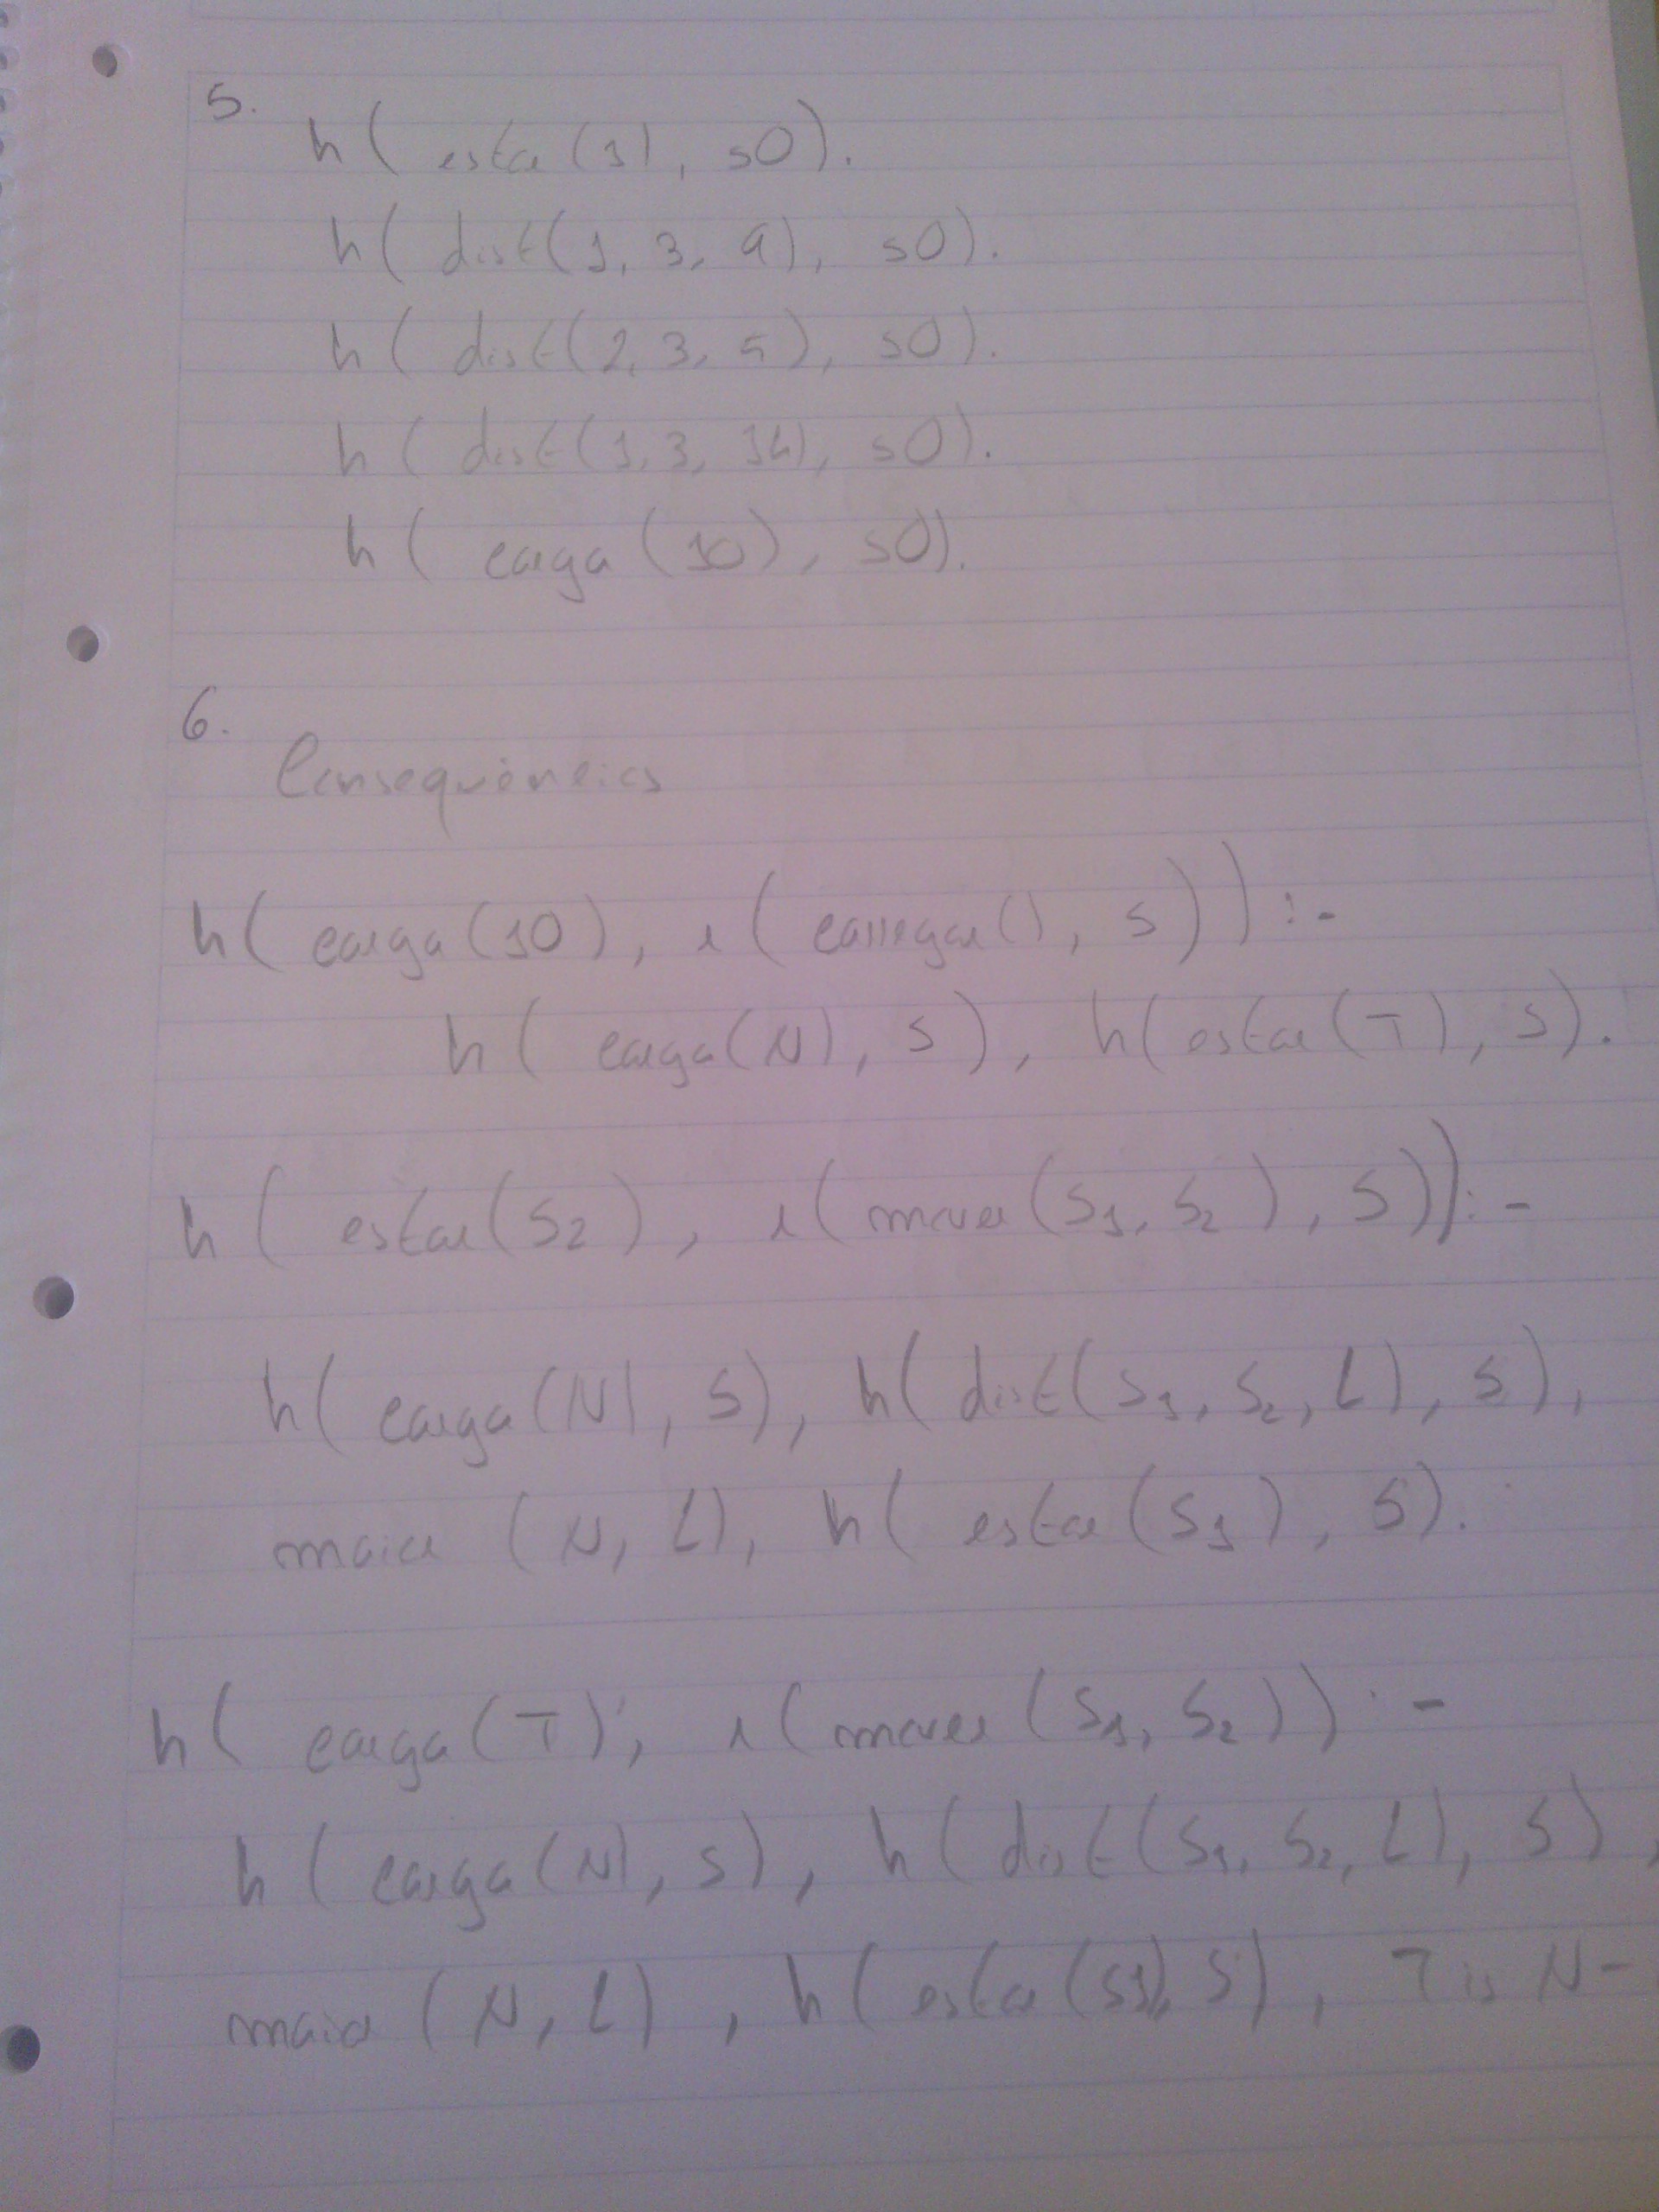 5.
h( estar(1), s0).
h( dist(1, 3, 9), s0).
h( dist(2, 3, 5), s0).
h( dist(1, 3, 14), s0).
h( carga(10), s0).
6.
Consequências
h( carga(10), r( carregar(), s)) :-
h( carga(N), S), h(estar(T), S).
h( estar(S2), r( mover(S1, S2), S)) :-
h( carga(N), S), h( dist(S1, S2, L), S),
maior (N, L), h( estar(S1), S).
h( carga(T), r( mover(S1, S2)) :-
h( carga(N), S), h( dist(S1, S2, L), S),
maior (N, L), h( estar(S1), S), T is N-